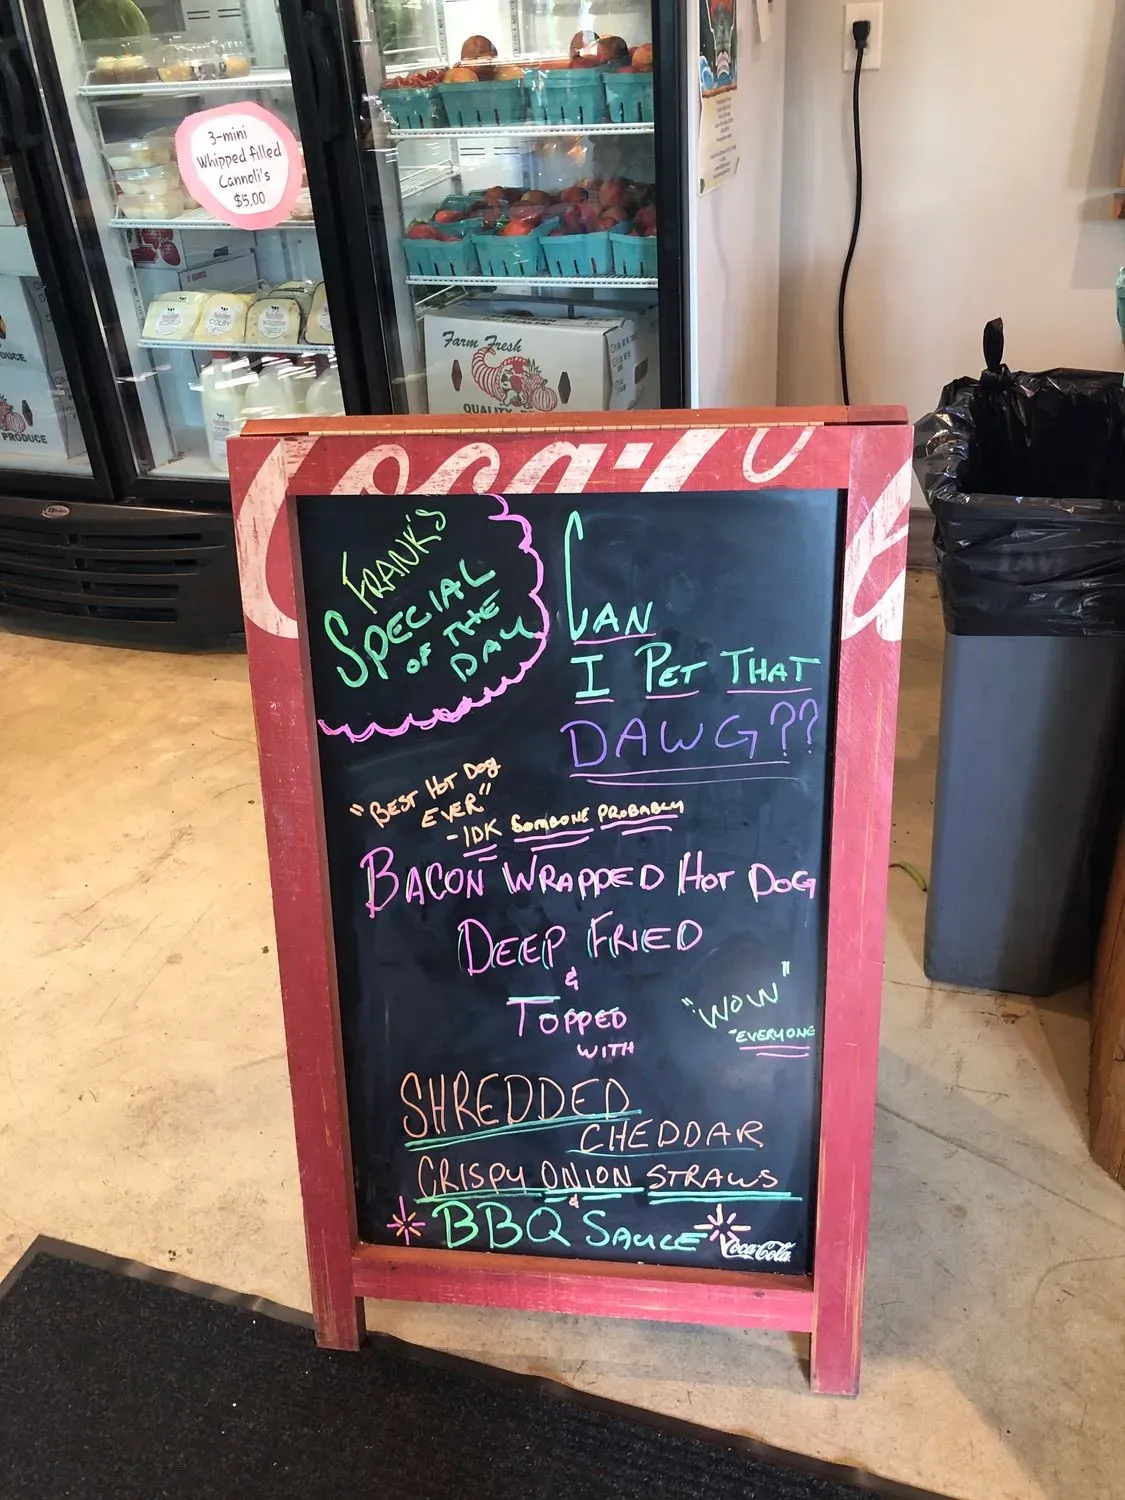 3-mini
Whipped filled
Cannoli's
$5.00
COLBY
Farm Fresh
QUALITY
PRODUCE
Coca-Co
FRANK'S
SPECIAL
OF THE
DAY
CAN
I PET THAT
DAWG??
"BEST HOT DOG
EVER"
-IDK SOMEONE PROBABLY
BACON WRAPPED HOT DOG
DEEP FRIED
&
TOPPED
WITH
"WOW"
-EVERYONE
SHREDDED
CHEDDAR
CRISPY ONION STRAWS
&
BBQ SAUCE
Coca-Cola